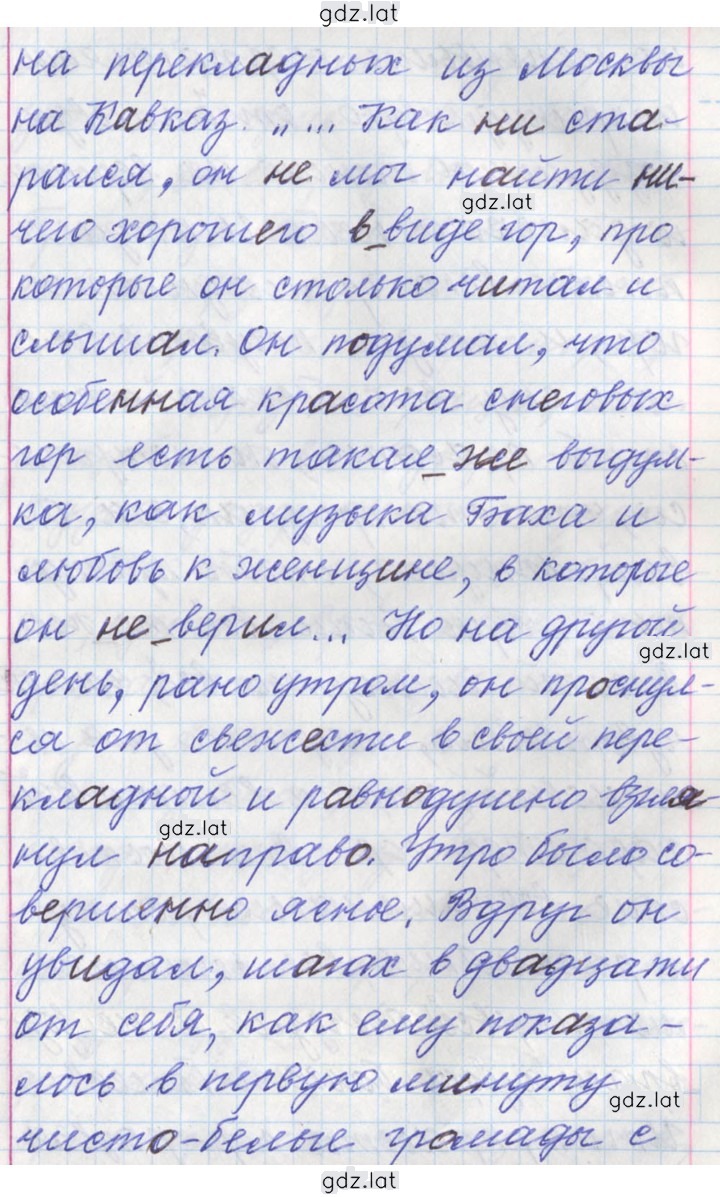 gdz.lat
на перекладных из Москвы
на Кавказ. „ ... Как ни ста-
рался, он не мог найти ни-
gdz.lat
чего хорошего в виде гор, про
которые он столько читал и
слышал. Он подумал, что
особенная красота снеговых
гор есть такая же выдум-
ка, как музыка Баха и
любовь к женщине, в которые
он не верил... Но на другой
gdz.lat
день, рано утром, он проснул-
ся от свежести в своей пере-
кладной и равнодушно взгля-
gdz.lat
нул направо. Утро было со-
вершенно ясное. Вдруг он
увидал, шагах в двадцати
от себя, как ему показа-
лось в первую минуту
gdz.lat
чисто-белые громады с
gdz.lat